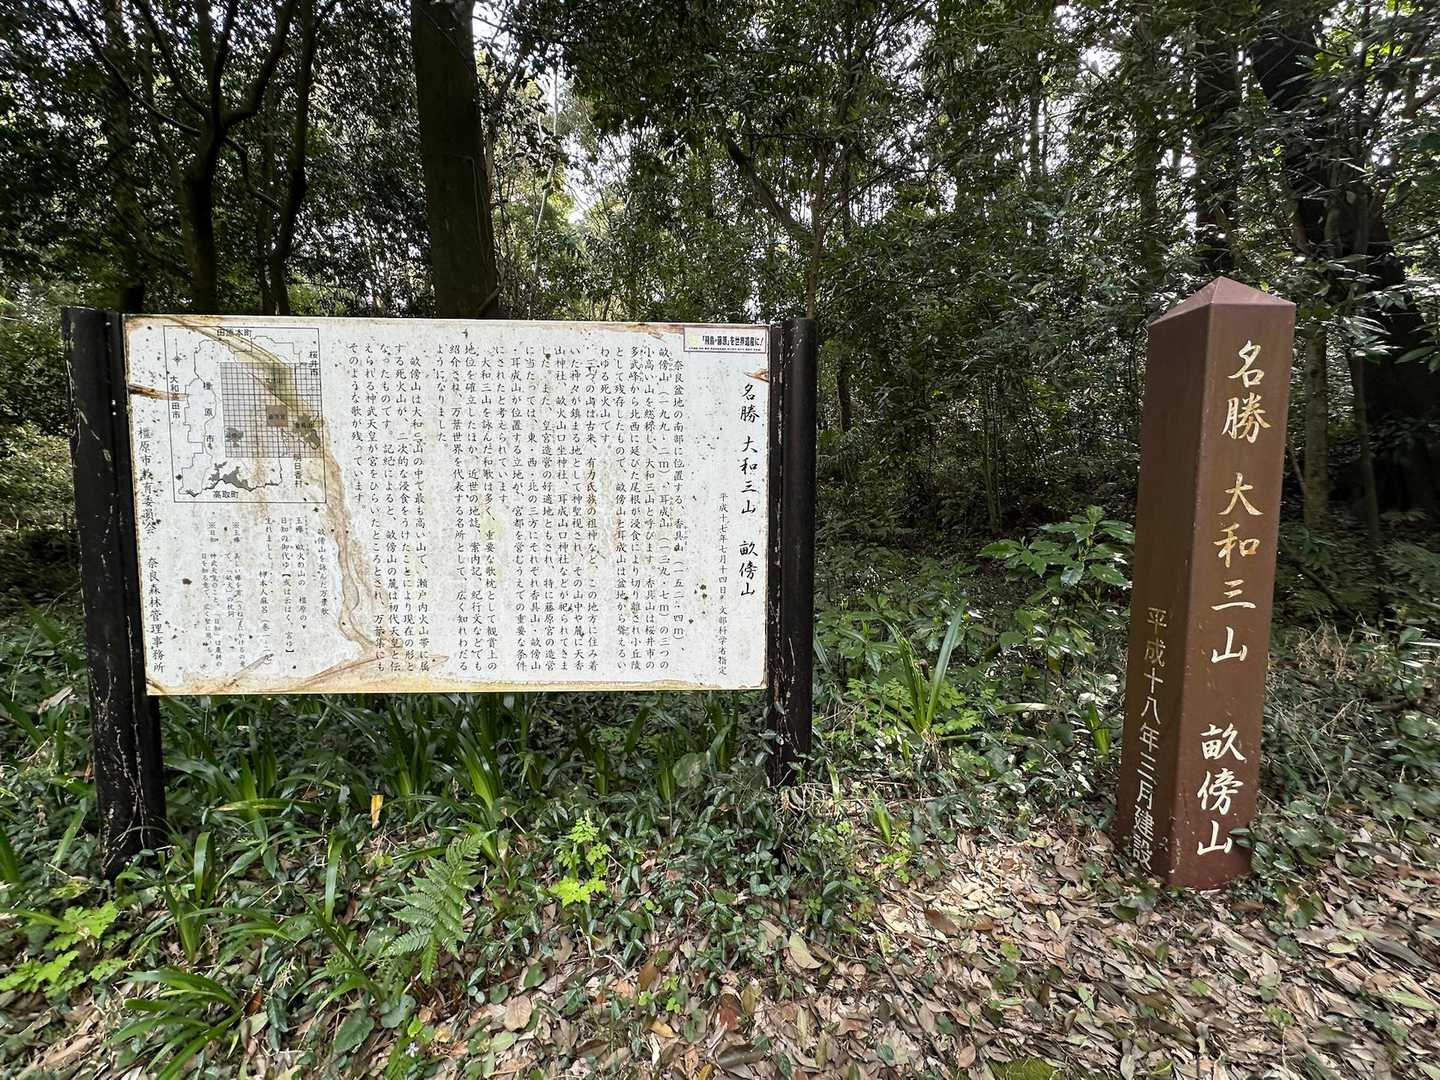 「飛鳥・藤原」を世界遺産に!
名勝 大和三山 畝傍山
平成十七年七月十四日 文部科学省指定
奈良盆地の南部に位置する、香具山(一五二・四m)、
畝傍山(一九九・二m)、耳成山(一三九・七m)の三つの
小高い山を総称し、大和三山と呼びます。香具山は桜井市の
多武峰から北西に延びた尾根が浸食により切り離され小丘陵
として残存したもので、畝傍山と耳成山は盆地から聳えるい
わゆる死火山です。
三つの山は古来、有力氏族の祖神など、この地方に住み着
いた神々が鎮まる地として神聖視され、その山中や麓に天香
山神社、畝火山口坐神社、耳成山口神社などが祀られてきま
した。また、皇宮造営の好適地ともされ、特に藤原宮の造営
に当たっては、東・西・北の三方にそれぞれ香具山・畝傍山
・耳成山が位置する立地が、宮都を営むうえでの重要な条件
にされたと考えられています。
大和三山を詠んだ和歌は多く、重要な歌枕として観賞上の
地位を確立したほか、近世の地誌、案内記、紀行文などでも
紹介され、万葉世界を代表する名所として、広く知れわたる
ようになりました。
畝傍山は大和三山の中で最も高い山で、瀬戸内火山帯に属
する死火山が、二次的な浸食をうけたことにより現在の形と
なったものです。記紀によると、畝傍山の麓は初代天皇と伝
えられる神武天皇が宮をひらいたところとされ、万葉集にも
そのような歌が残っています。
畝傍山を詠んだ万葉歌
玉襷 畝火の山の 橿原の
日知の御代ゆ【或は云はく、宮ゆ】
生れましし
柿本人麻呂(巻一-二九)
※玉襷
※日知
田原本町
桜井市
大和高田市
橿原市
明日香村
高取町
橿原市教育委員会 奈良森林管理事務所
名勝 大和三山 畝傍山
平成十八年三月建設